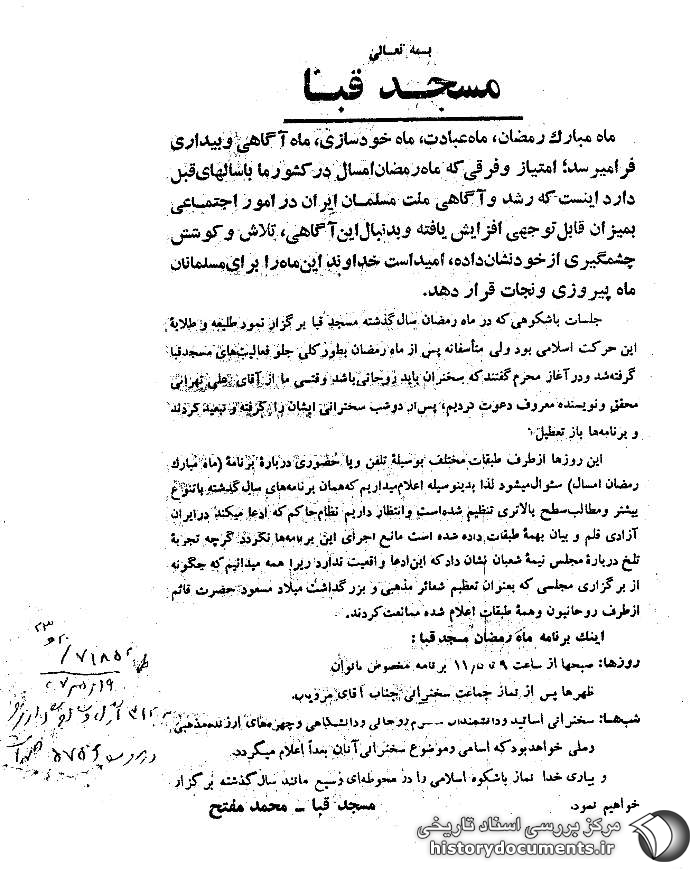 بسمه تعالی
مسجد قبا
ماه مبارك رمضان، ماه عبادت، ماه خودسازی، ماه آگاهی و بیداری
فرامیرسد؛ امتیاز و فرقی که ماه رمضان امسال در کشور ما با سالهای قبل
دارد اینست که رشد و آگاهی ملت مسلمان ایران در امور اجتماعی
بمیزان قابل توجهی افزایش یافته و بدنبال این آگاهی، تلاش و کوشش
چشمگیری از خود نشان داده، امید است خداوند این ماه را برای مسلمانان
ماه پیروزی و نجات قرار دهد.
جلسات باشکوهی که در ماه رمضان سال گذشته مسجد قبا برگزار نمود طلیعه و طلایهٔ
این حرکت اسلامی بود ولی متأسفانه پس از ماه رمضان بطور کلی جلو فعالیت‌های مسجد قبا
گرفته شد و در آغاز محرم گفتند که سخنران باید روحانی باشد وقتی ما از آقای علی تهرانی
محقق و نویسنده معروف دعوت کردیم، پس از دو شب سخنرانی ایشان را گرفته و تبعید کردند
و برنامه‌ها باز تعطیل.
این روزها از طرف طبقات مختلف بوسیلهٔ تلفن و یا حضوری دربارهٔ برنامهٔ (ماه مبارك
رمضان امسال) سئوال میشود لذا بدینوسیله اعلام میداریم که همان برنامه‌های سال گذشته با تنوع
بیشتر و مطالب سطح بالاتری تنظیم شده است و انتظار داریم نظام حاکم که ادعا میکند در ایران
آزادی قلم و بیان بهمهٔ طبقات داده شده است مانع اجرای این برنامه‌ها نگردد گرچه تجربهٔ
تلخ دربارهٔ مجلس نیمهٔ شعبان نشان داد که این ادعا واقعیت ندارد زیرا همه میدانیم که چگونه
از برگزاری مجلسی که بعنوان تعظیم شعائر مذهبی و بزرگداشت میلاد مسعود حضرت قائم
از طرف روحانیون و همهٔ طبقات اعلام شده ممانعت کردند.
اینك برنامه ماه رمضان مسجد قبا:
روزها: صبحها از ساعت ۹ تا ۱۱ برنامه مخصوص بانوان
ظهرها پس از نماز جماعت سخنرانی جناب آقای
شبها: سخنرانی اساتید و دانشمندان محترم روحانی و دانشگاهی و چهره‌های ارزنده مذهبی
و ملی خواهد بود که اسامی و موضوع سخنرانی آنان بعداً اعلام میگردد.
و بیاری خدا نماز باشکوه اسلامی را در محوطه‌ای وسیع مانند سال گذشته برگزار
خواهیم نمود.
مسجد قبا - محمد مفتح
مرکز بررسی اسناد تاریخی
historydocuments.ir